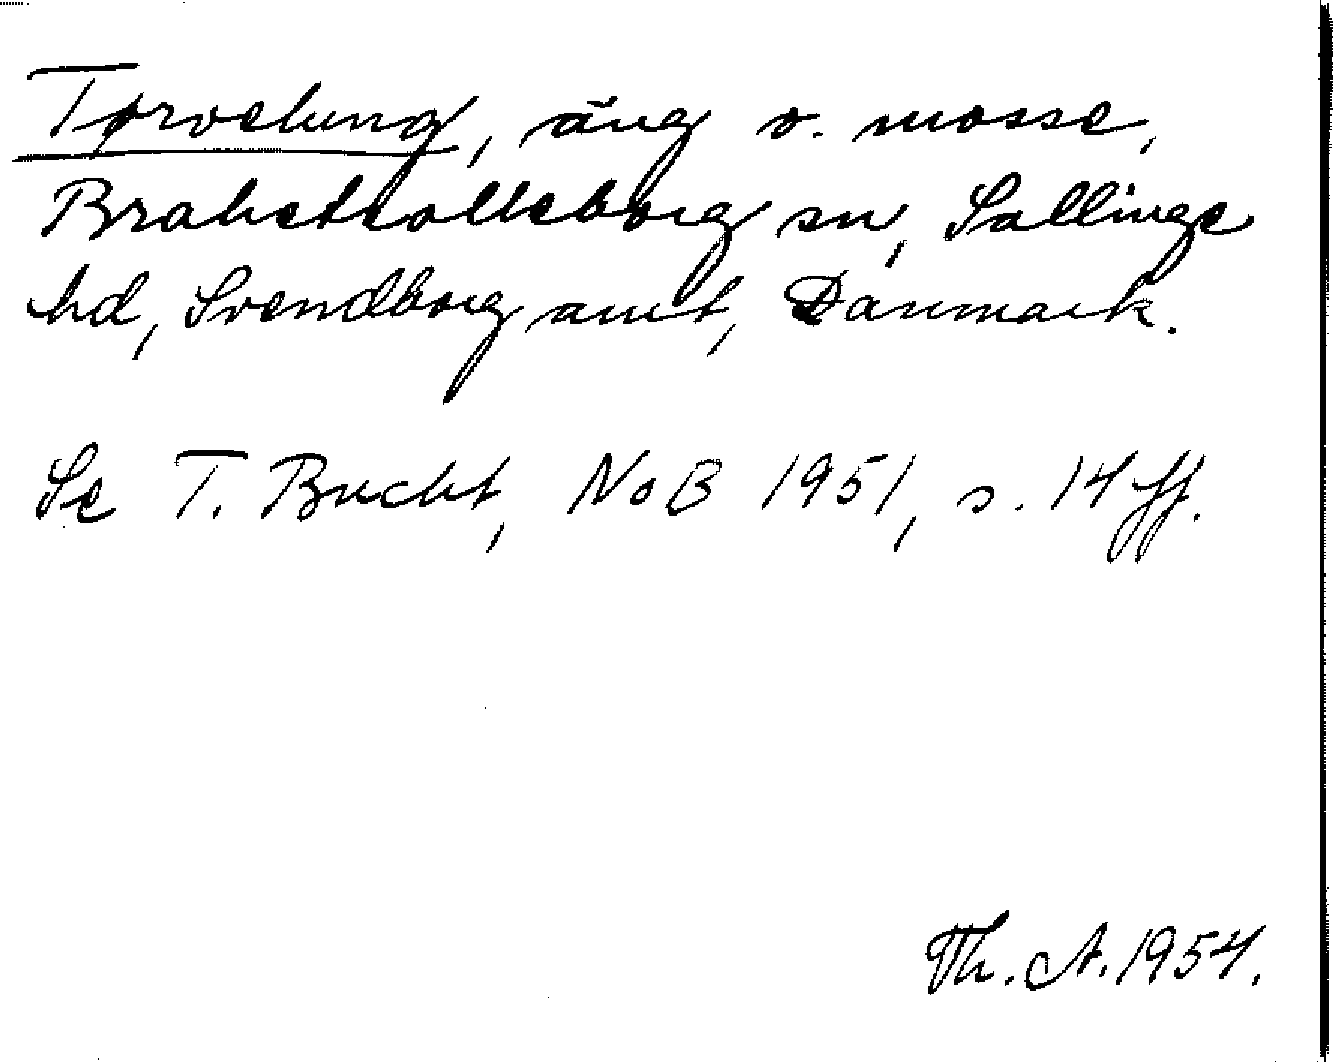 Tørvelung, äng o. mosse,
Brahetrolleborg sn, Sallinge
hd, Svendborg amt, Danmark.
Se T. Bucht, NoB 1951, s. 14 ff.
Th. A. 1954.